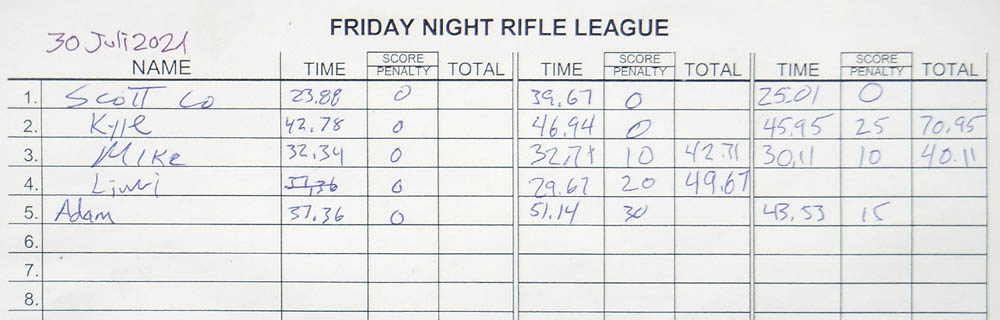 FRIDAY NIGHT RIFLE LEAGUE
30 Juli 2021
NAME TIME SCORE PENALTY TOTAL TIME SCORE PENALTY TOTAL TIME SCORE PENALTY TOTAL
1. Scott Co 23.88 0 39.67 0 25.01 0
2. Kyle 42.78 0 46.94 0 45.95 25 70.95
3. Mike 32.34 0 32.71 10 42.71 30.11 10 40.11
4. 37.36 0 29.67 20 49.67
5. Adam 37.36 0 51.14 30 43.53 15
6.
7.
8.